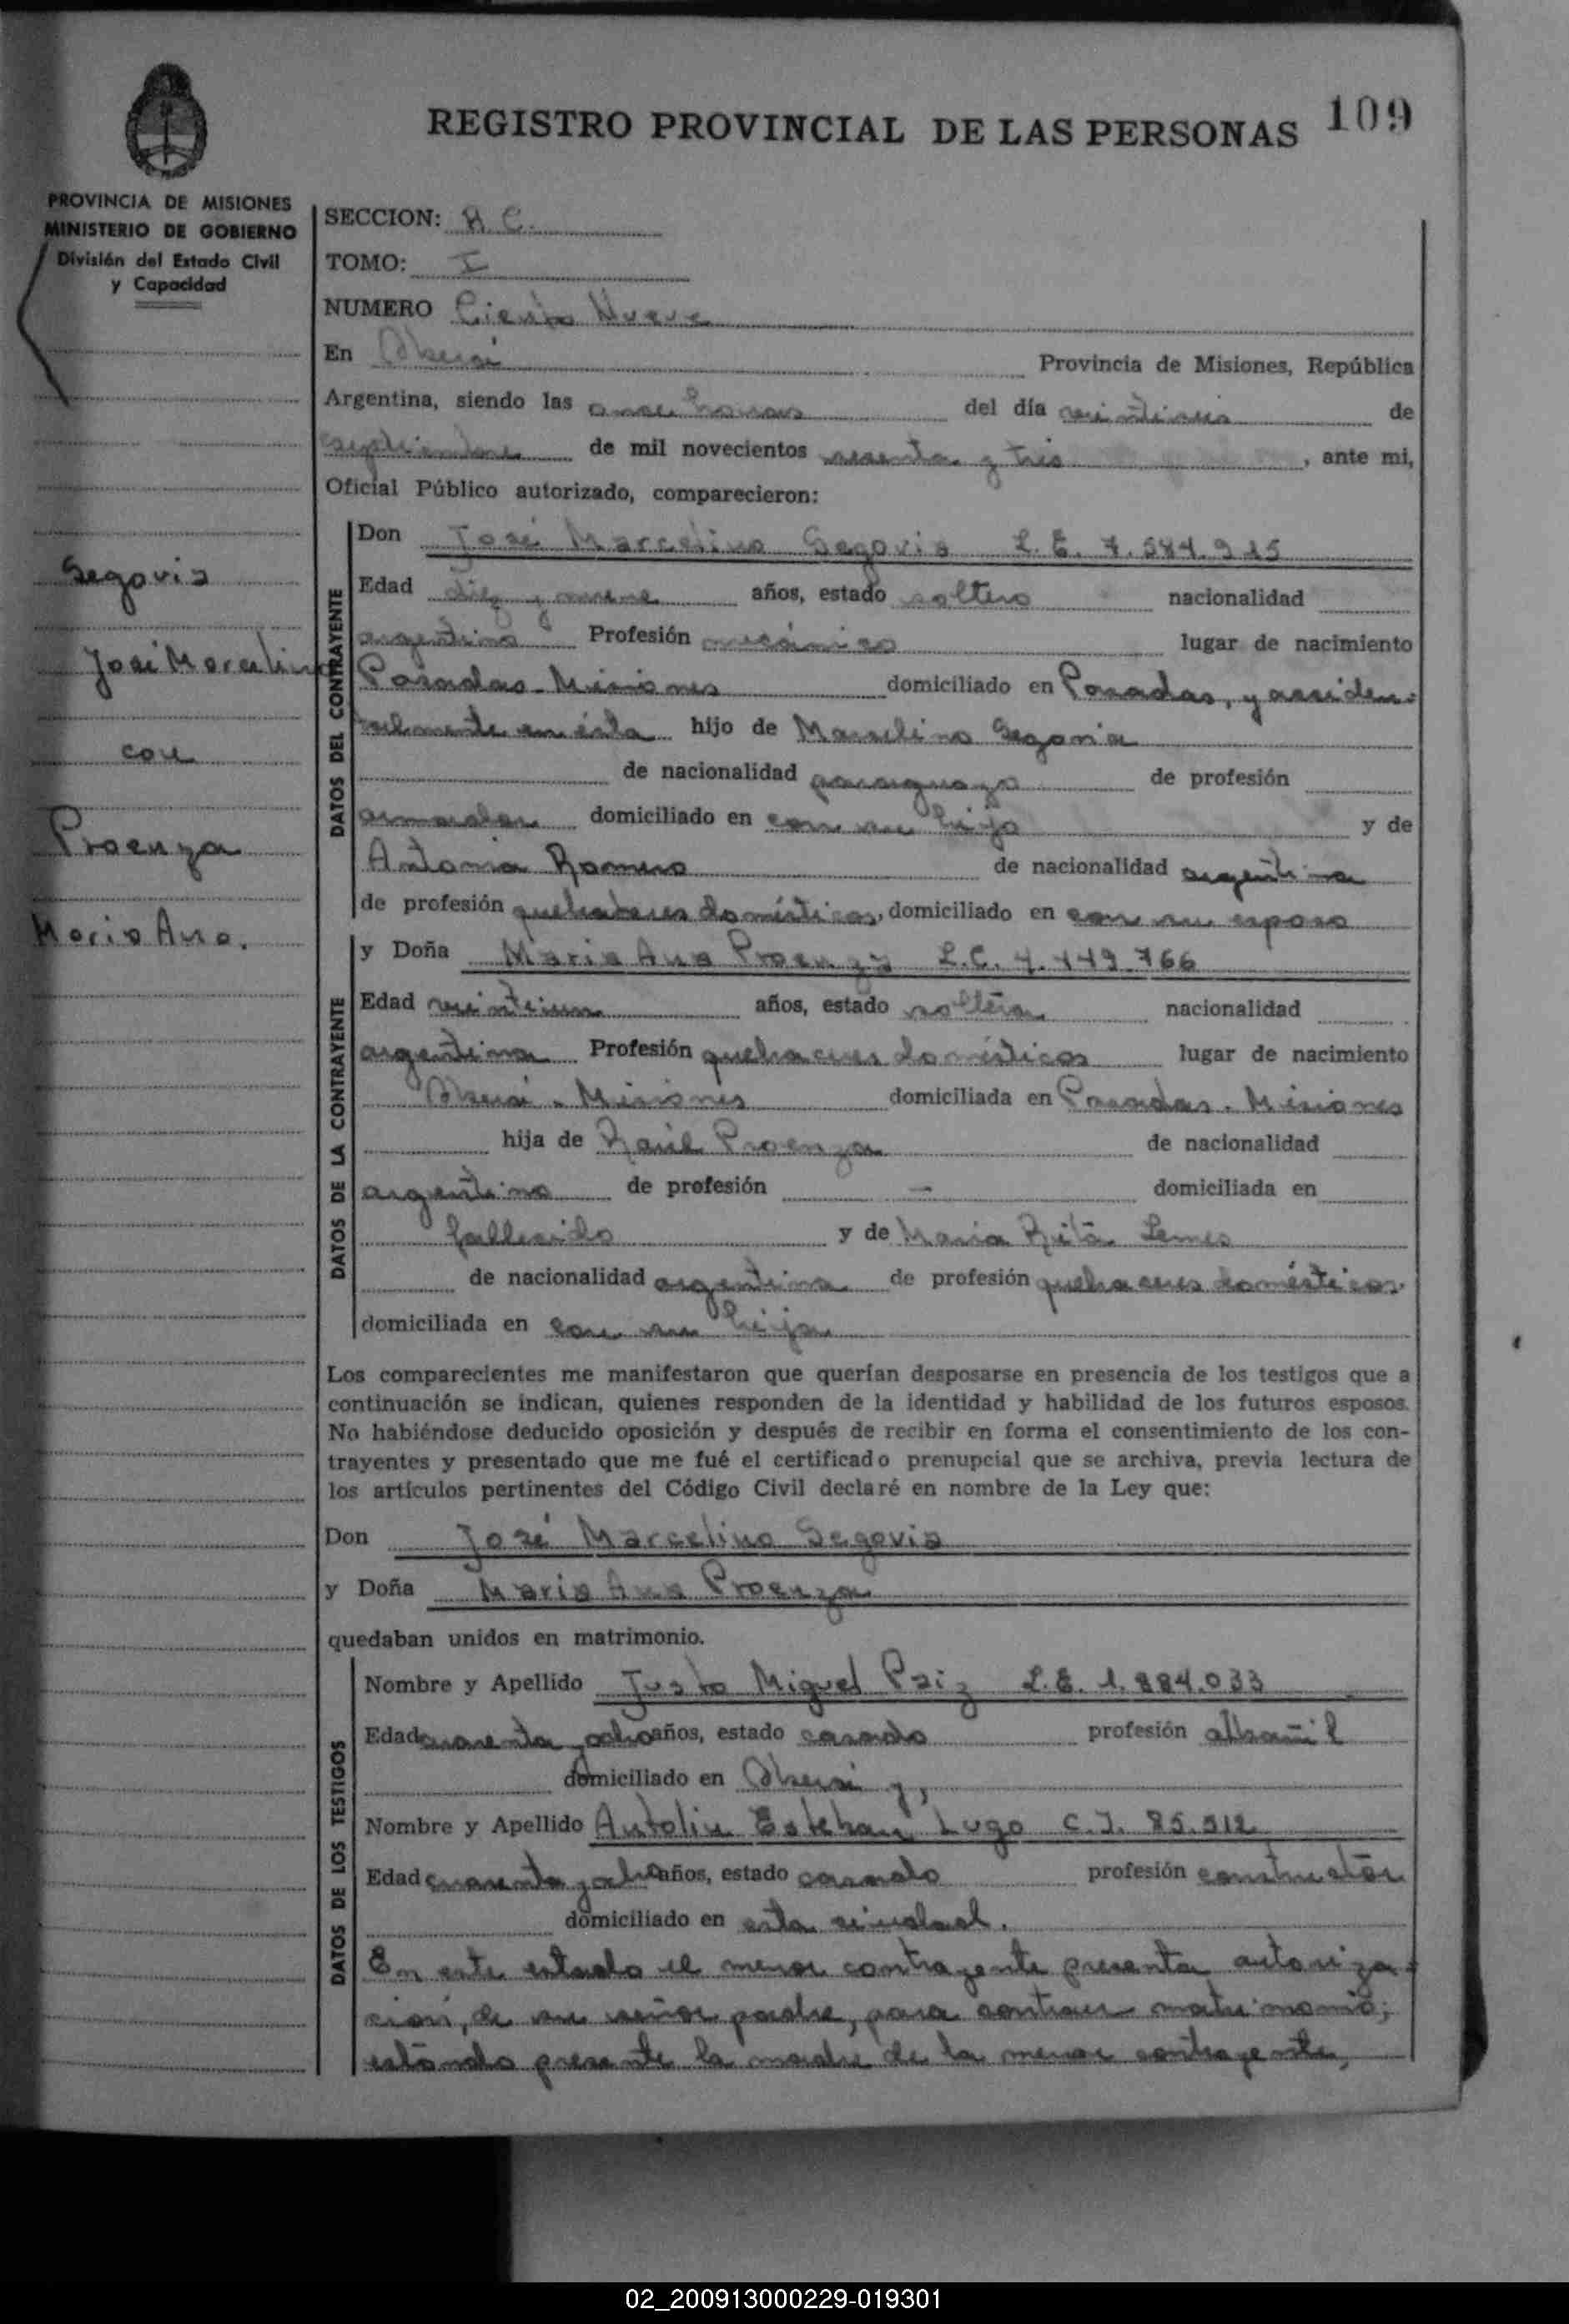 REGISTRO PROVINCIAL DE LAS PERSONAS 109
PROVINCIA DE MISIONES
MINISTERIO DE GOBIERNO
División del Estado Civil
y Capacidad
Segovia
José Marcelino
con
Proenza
María Ana.
SECCION: A.C.
TOMO: I
NUMERO Ciento Nueve
En Oberá Provincia de Misiones, República
Argentina, siendo las once horas del día veintiseis de
septiembre de mil novecientos sesenta y tres, ante mi,
Oficial Público autorizado, comparecieron:
DATOS DEL CONTRAYENTE
Don José Marcelino Segovia L.E. 7.584.915
Edad diez y nueve años, estado soltero nacionalidad
argentino Profesión mecánico lugar de nacimiento
Posadas - Misiones domiciliado en Posadas, y acciden-
talmente en ésta hijo de Marcelino Segovia
de nacionalidad paraguayo de profesión
armador domiciliado en con su hijo y de
Antonia Romero de nacionalidad argentina
de profesión quehaceres domésticos, domiciliado en con su esposo
DATOS DE LA CONTRAYENTE
y Doña María Ana Proenza L.C. 4.449.766
Edad veintiun años, estado soltera nacionalidad
argentina Profesión quehaceres domésticos lugar de nacimiento
Oberá - Misiones domiciliada en Posadas - Misiones
hija de Raúl Proenza de nacionalidad
argentino de profesión - domiciliada en
fallecido y de María Rita Lemes
de nacionalidad argentina de profesión quehaceres domésticos.
domiciliada en con su hija
Los comparecientes me manifestaron que querían desposarse en presencia de los testigos que a
continuación se indican, quienes responden de la identidad y habilidad de los futuros esposos.
No habiéndose deducido oposición y después de recibir en forma el consentimiento de los con-
trayentes y presentado que me fué el certificado prenupcial que se archiva, previa lectura de
los artículos pertinentes del Código Civil declaré en nombre de la Ley que:
Don José Marcelino Segovia
y Doña María Ana Proenza
quedaban unidos en matrimonio.
DATOS DE LOS TESTIGOS
Nombre y Apellido Justo Miguel Paiz L.E. 1.884.033
Edad cuarenta y ocho años, estado casado profesión albañil
domiciliado en Oberá y,
Nombre y Apellido Antolin Esteban Lugo C.I. 85.512
Edad cuarenta y ocho años, estado casado profesión constructor
domiciliado en esta ciudad.
En este estado el menor contrayente presenta autoriza-
ción, de su señor padre, para contraer matrimonio;
estando presente la madre de la menor contrayente,
02_200913000229-019301